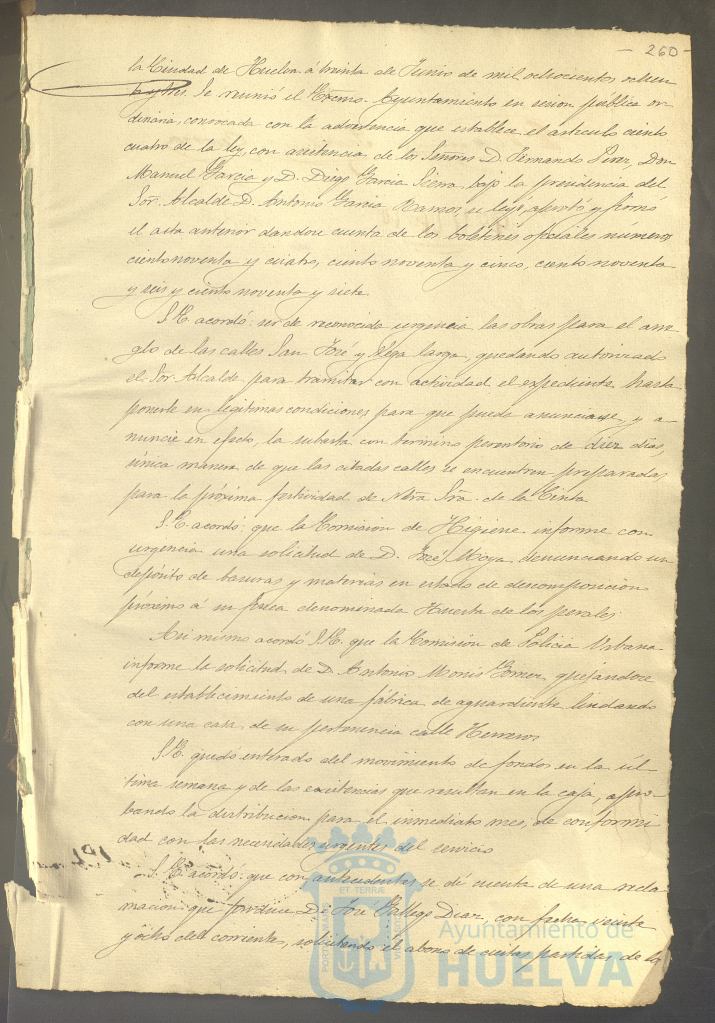 - 260 -
la Ciudad de Huelva á treinta de Junio de mil ochocientos ochen
ta y tres. Se reunió el Excmo. Ayuntamiento en sesion pública or
dinaria, convocada con la advertencia que establece el articulo ciento
cuatro de la ley, con asistencia de los Señores D. Fernando Perez, Don
Manuel Garcia y D. Diego Garcia Sierra, bajo la presidencia del
Sor. Alcalde D. Antonio Garcia Ramos, se leyó, aprobó y firmó
el acta anterior dandose cuenta de los boletines oficiales numeros
ciento noventa y cuatro, ciento noventa y cinco, ciento noventa
y seis y ciento noventa y siete.
S.E. acordó: ser de reconocida urgencia las obras para el arre
glo de las calles San José y Vega larga, quedando autorizado
el Sor. Alcalde para tramitar con actividad el expediente hasta
ponerle en legitimas condiciones para que pueda anunciarse, y a-
nuncie en efecto, la subasta con termino perentorio de diez dias,
única manera de que las citadas calles se encuentren preparadas
para la próxima festividad de Ntra Sra. de la Cinta
S.E. acordó: que la Comision de Higiene informe con
urgencia una solicitud de D. José Moya denunciando un
depósito de basuras y materias en estado de descomposicion
próximo á su finca denominada Huerta de los perales.
Asi mismo acordó S.E. que la Comision de Policia Urbana
informe la solicitud de D. Antonio Monis Gomez quejándose
del establecimiento de una fábrica de aguardiente lindando
con una casa de su pertenencia calle Herreros
S.E. quedó enterado del movimiento de fondos en la úl-
tima semana y de las existencias que resultan en la caja, apro-
bando la distribucion para el inmediato mes, de conformi
dad con las necesidades urgentes del servicio
S.E. acordó: que con antecedentes se dé cuenta de una recla
macion que produce D. José Gallego Diaz, con fecha veinte
y ocho del corriente, solicitando el abono de ciertas partidas de la
ET TERRÆ
Ayuntamiento de
HUELVA